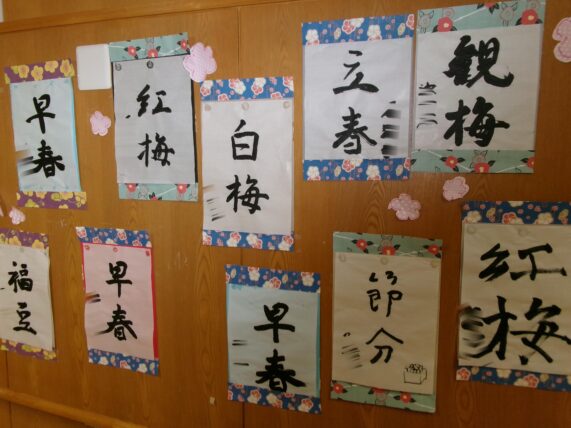 早春
紅梅
白梅
立春
観梅
福豆
早春
早春
節分
紅梅